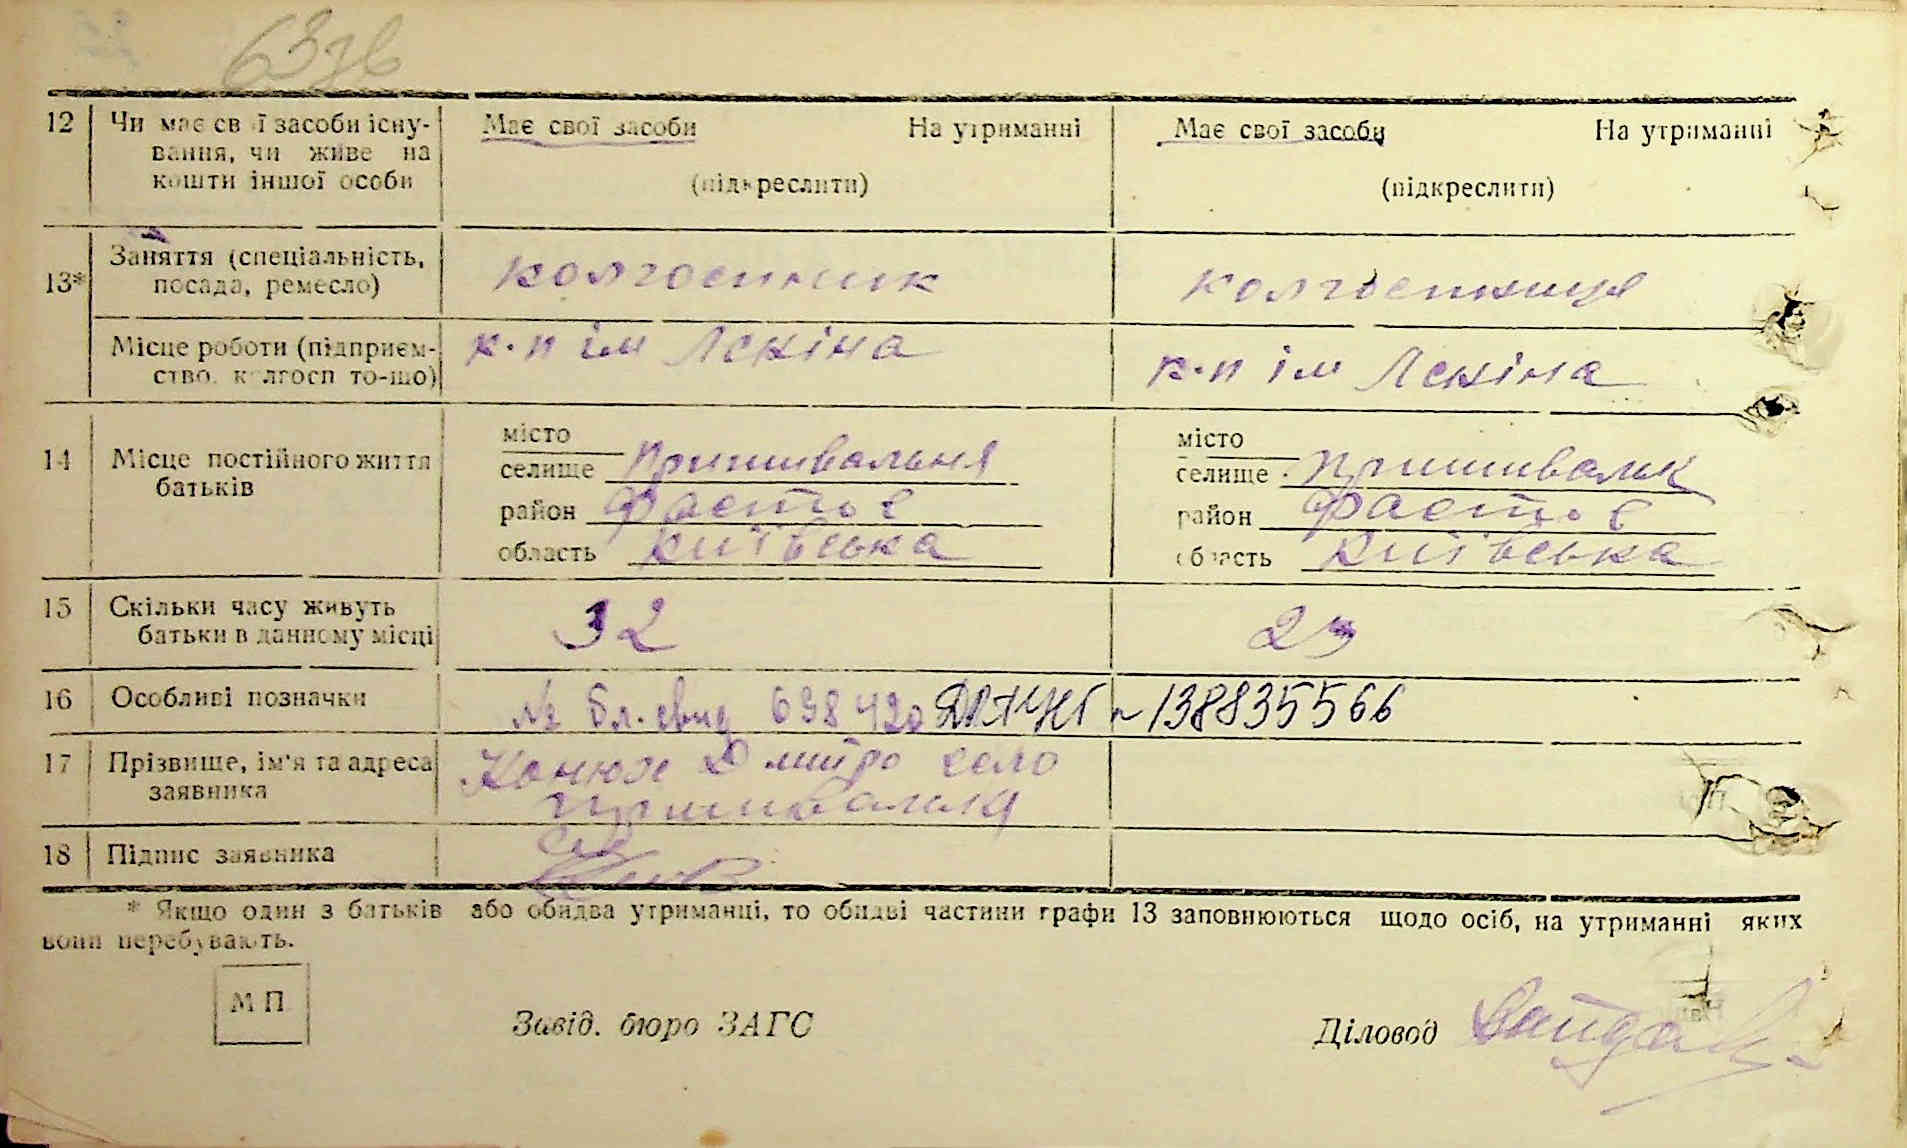 63зв
12 Чи має свої засоби існу- Має свої засоби На утриманні Має свої засоби На утриманні
вання, чи живе на
кошти іншої особи (підкреслити) (підкреслити)
13* Заняття (спеціальність, колгоспник колгоспниця
посада, ремесло)
Місце роботи (підприєм- к-п ім Леніна к-п ім Леніна
ство, колгосп то-що)
14 Місце постійного життя місто місто
батьків селище Пришивальня селище Пришивальн
район Фастов район Фастов
область Київська область Київська
15 Скільки часу живуть 32 25
батьки в данному місці
16 Особливі позначки № бл. свид 698420 ДАУНТ n 138835566
17 Прізвище, ім'я та адреса Конюх Дмитро село
заявника Пришивальня
18 Підпис заявника
* Якщо один з батьків або обидва утриманці, то обидві частини графи 13 заповнюються щодо осіб, на утриманні яких
вони перебувають.
МП
Завід. бюро ЗАГС Діловод